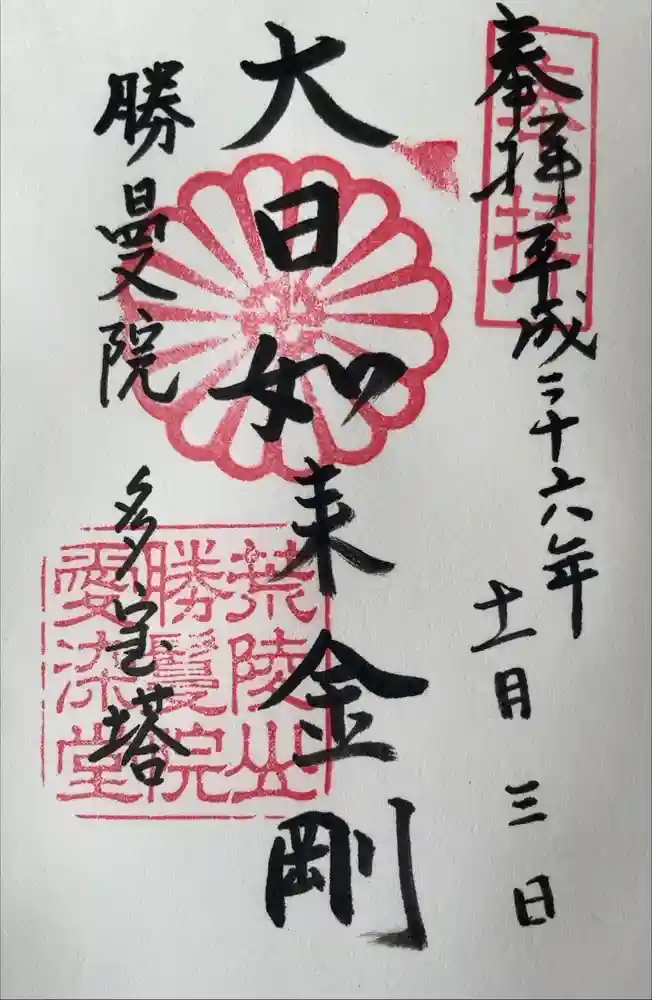 奉拝 平成二十六年
十一月三日
奉拝
大日如来金剛
勝曼院 多宝塔
荒陵山
勝鬘院
愛染堂